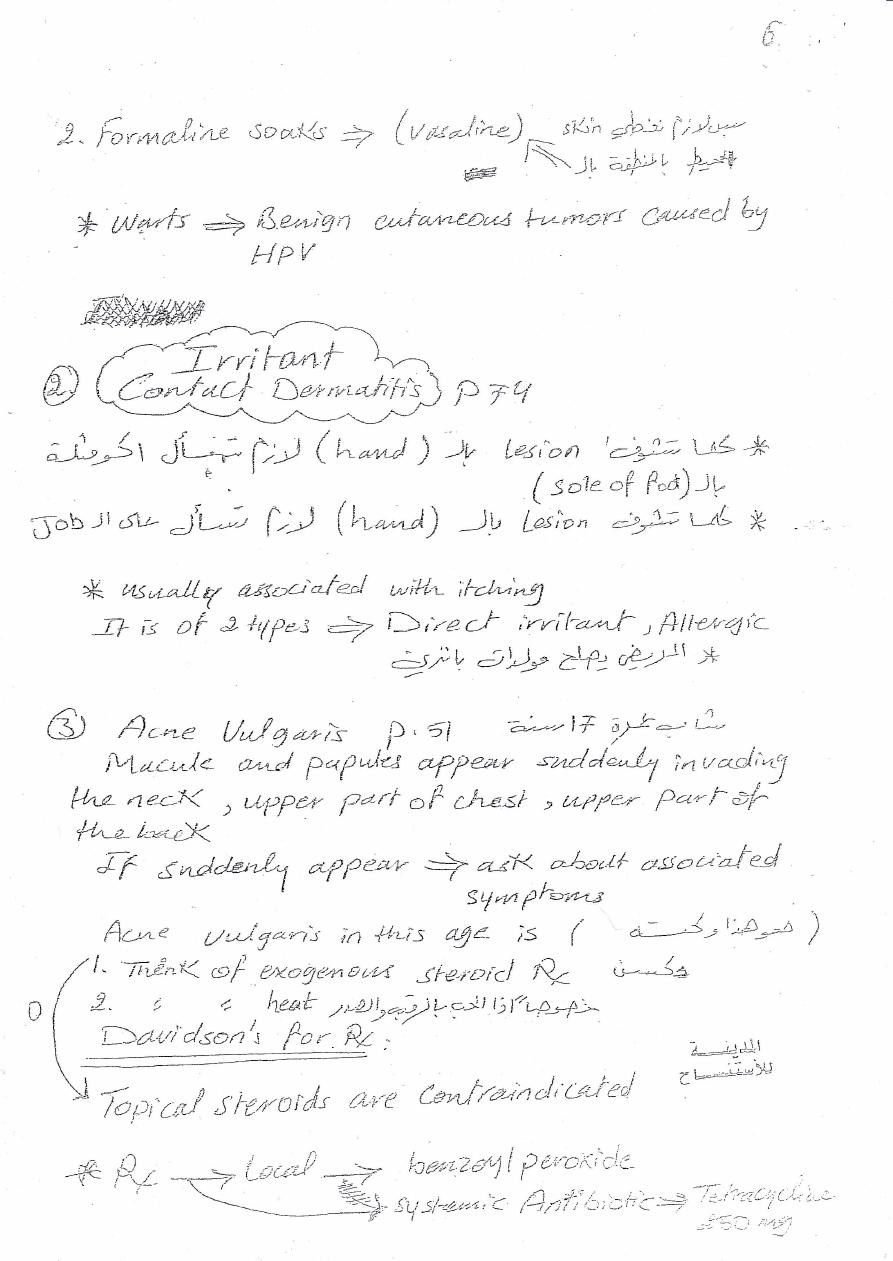 6
2. Formaline soaks ⇒ (vasaline) بس لازم نغطي skin
المحيط بالمنطقة بال
* Warts ⇒ Benign cutaneous tumors caused by
HPV
② Irritant
Contact Dermatitis P 74
* كلما تشوف lesion بال (hand) لازم تسأل
بال (sole of foot)
* كلما تشوف lesion بال (hand) لازم تسأل على ال Job
* usually associated with itching
It is of 2 types ⇒ Direct irritant, Allergic
* المريض يصلح مولدات
③ Acne Vulgaris p. 51 شاب عمره 17 سنة
Macule and papules appear suddenly invading
the neck, upper part of chest, upper part of
the back
If suddenly appear ⇒ ask about associated
symptoms
Acne vulgaris in this age is (هو هذا وكته)
1. Think of exogenous steroid Rx
2. " " heat خصوصا اذا
Davidson's for Rx:
المدينة
للأستنساخ
Topical steroids are contraindicated
* Rx → Local → benzoyl peroxide
systemic Antibiotic → Tetracycline
250 mg